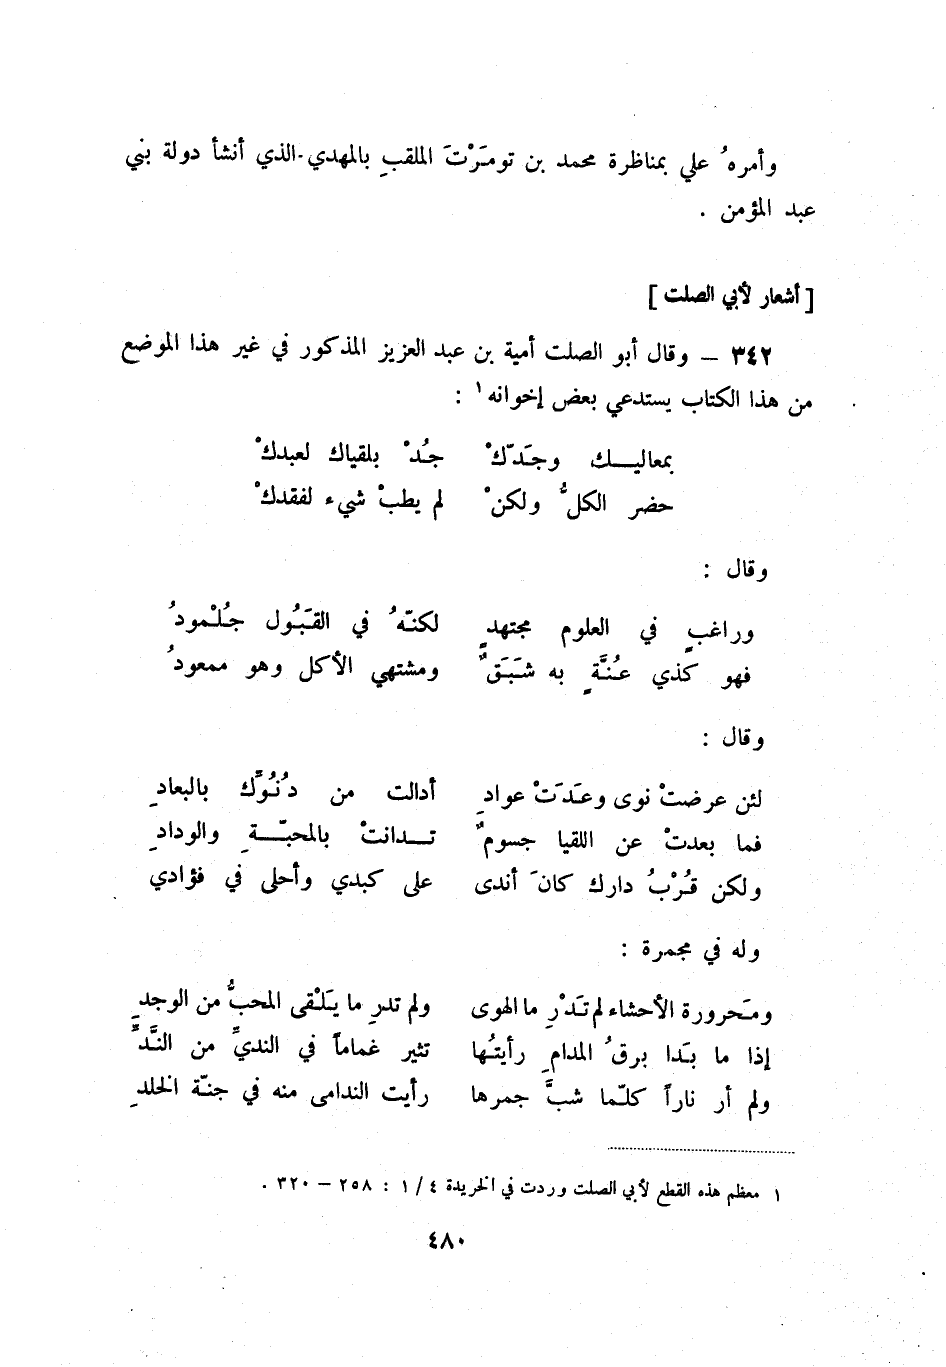 وأمرهُ علي بمناظرة محمد بن تومَرْتَ الملقبِ بالمهدي الذي أنشأ دولة بني
عبد المؤمن .
[ أشعار لأبي الصلت ]
٣٤٢ – وقال أبو الصلت أمية بن عبد العزيز المذكور في غير هذا الموضع
من هذا الكتاب يستدعي بعض إخوانه١ :
بمعاليـــك وجَدّكْ جُدْ بلقياك لعبدكْ
حضر الكلُّ ولكنْ لم يطبْ شيء لفقدكْ
وقال :
وراغبٍ في العلوم مجتهدٍ لكنّهُ في القَبُول جُلْمودُ
فهو كذي عُنَّةٍ به شَبَقٌ ومشتهي الأكل وهو ممعودُ
وقال :
لئن عرضتْ نوى وعَدَتْ عوادِ أدالت من دُنُوِّك بالبعادِ
فما بعدتْ عن اللقيا جسومٌ تـــدانتْ بالمحبّـــةِ والودادِ
ولكن قُرْبُ دارك كانَ أندى على كبدي وأحلى في فؤادي
وله في مجمرة :
ومَحرورة الأحشاء لم تَدْرِ ما الهوى ولم تدرِ ما يَلْقى المحبُّ من الوجدِ
إذا ما بَدا برقُ المدامِ رأيتُها تثير غماماً في النديِّ من النَّدِّ
ولم أر ناراً كلّما شبَّ جمرها رأيت الندامى منه في جنّة الخلدِ
١ معظم هذه القطع لأبي الصلت وردت في الخريدة ٤ / ١ : ٢٥٨ – ٣٢٠ .
٤٨٠